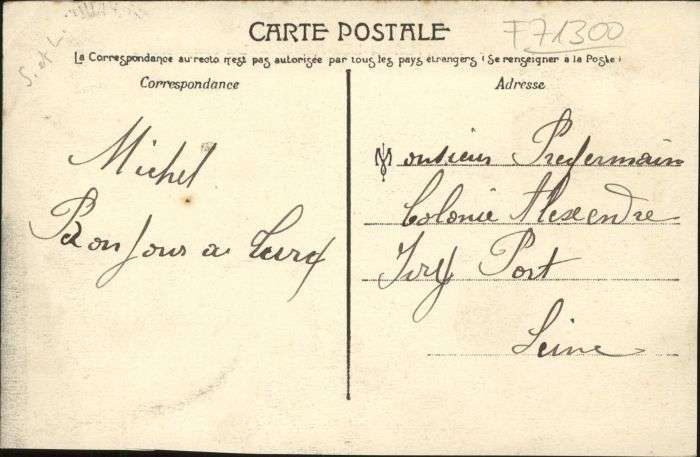 S. et L.
F71300
CARTE POSTALE
La Correspondance au recto n'est pas autorisée par tous les pays étrangers (Se renseigner à la Poste)
Correspondance
Michel
Bonjour a Lucy
Adresse
Monsieur Pregermain
Colonie Alexendre
Ivry Port
Seine